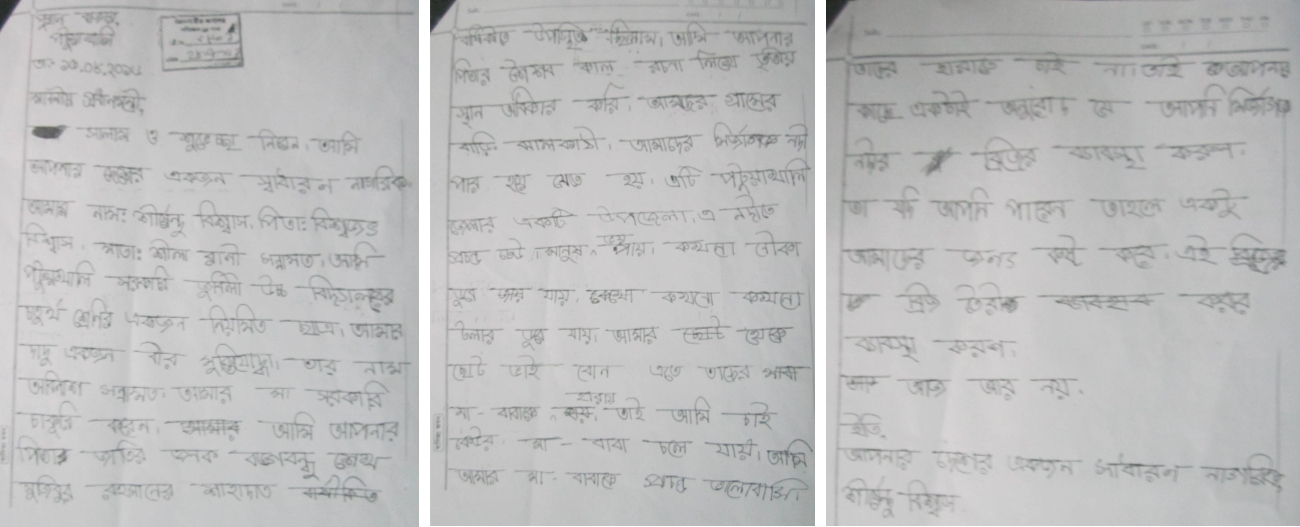 পটুয়াখালি
মাননীয় প্রধানমন্ত্রী,
সালাম ও শুভেচ্ছা নিবেন, আমি
আপনার দেশের একজন সাধারন নাগরিক
আমার নাম: শীর্ষেন্দু বিশ্বাস, পিতা: বিশ্বজিত
বিশ্বাস, মাতা: শীলা রানী সন্নামত, আমি
পটুয়াখালি সরকারি জুবিলী উচ্চ বিদ্যালয়ের
চতুর্থ শ্রেণির একজন নিয়মিত ছাত্র, আমার
দাদু একজন বীর মুক্তিযোদ্ধা, তার নাম
অবিনাশ সন্নামত, আমার মা সরকারি
চাকুরি করেন, আমি আপনার
পিতার জাতির জনক বঙ্গবন্ধু শেখ
মুজিবুর রহমানের শাহাদাত
উপস্থিত ছিলাম, আমি আপনার
পিতার শৈশব কাল রচনা লিখে তৃতীয়
স্থান অধিকার করি, আমাদের গ্রামের
বাড়ি ঝালকাঠী, আমাদের মির্জাগঞ্জ নদী
পার হয়ে যেতে হয়, এটি পটুয়াখালি
জেলার একটি উপজেলা, এ নদীতে
প্রচন্ড ঢেউ, মানুষ ভয় পায়, কখনো নৌকা
ডুবে যায়, কখনো কখনো
ট্রলার ডুবে যায়, আমার ছোট থেকে
ছোট ভাই বোন এতে তাদের মারা
মা-বাবাকে হারায়, তাই আমি চাই
মা-বাবা চলে যায়, আমি
আমার মা-বাবাকে প্রচন্ড ভালোবাসি,
তাদের হারাতে চাই না, তাই আপনার
কাছে একটাই অনুরোধ যে আপনি মির্জাগঞ্জ
নদীর ব্রিজের ব্যবস্থা করুন,
তা যদি আপনি পারেন তাহলে একটু
আমাদের জন্য কষ্ট করে, এই
ব্রিজ তৈরীর করার
ব্যবস্থা করুন,
আজ আর নয়,
ইতি,
আপনার দেশের একজন সাধারন নাগরিক
শীর্ষেন্দু বিশ্বাস,